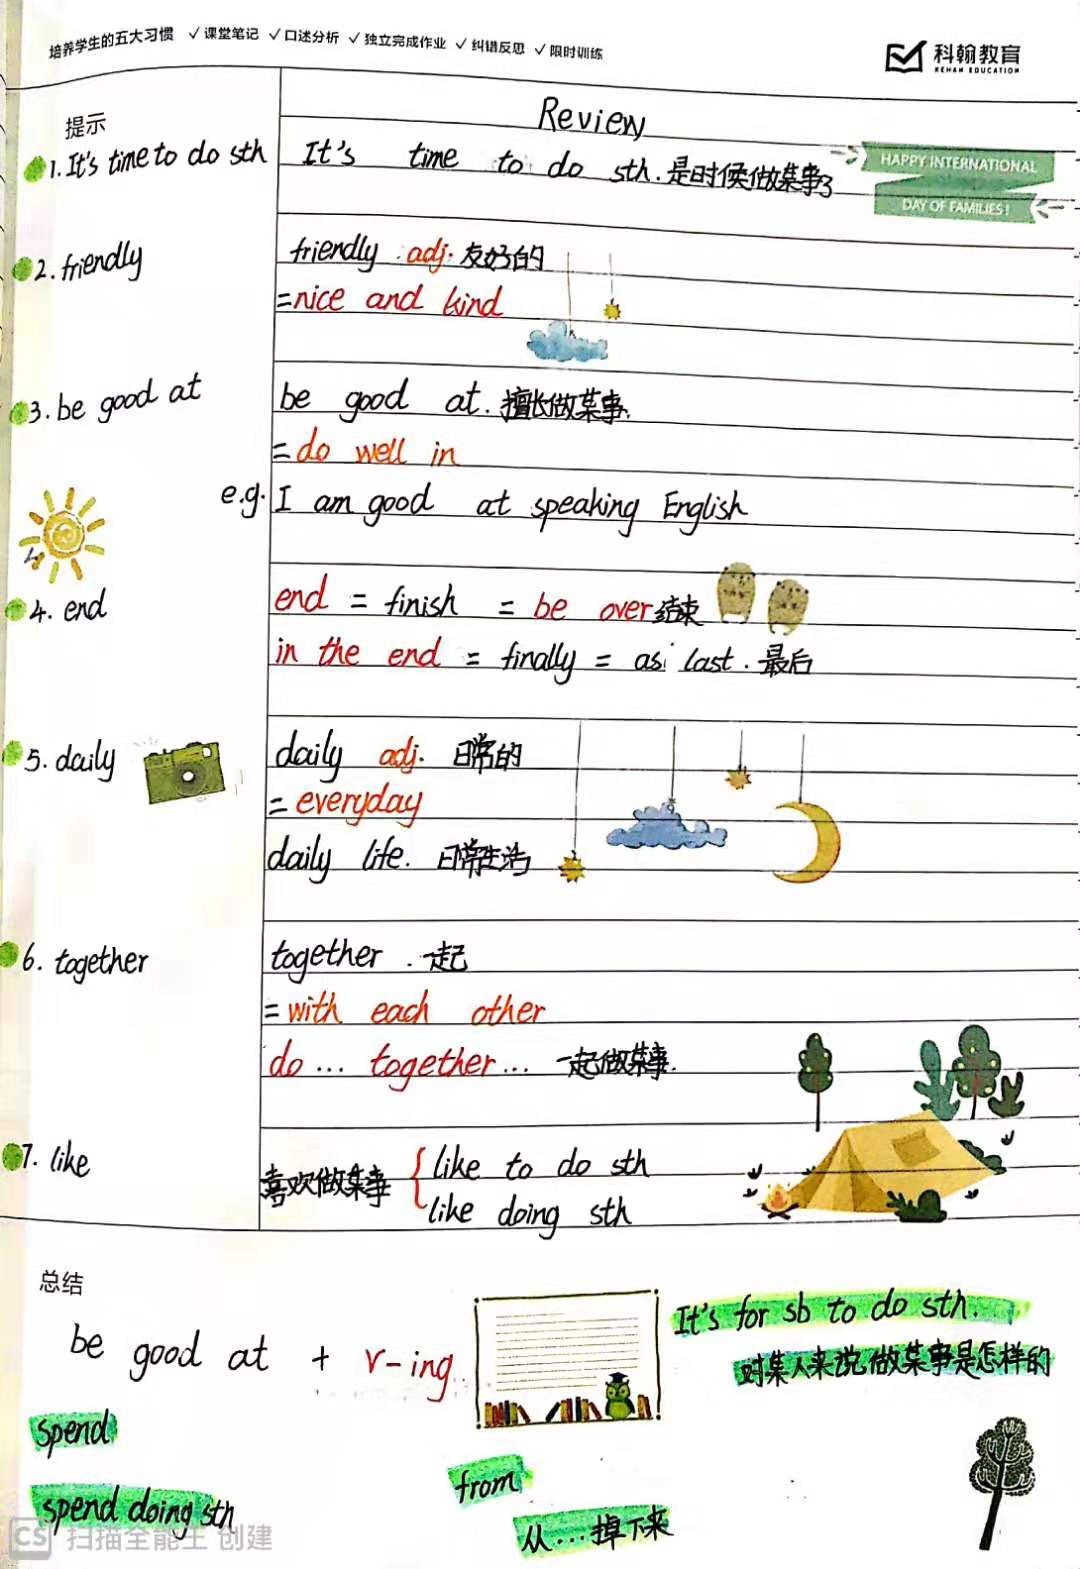 培养学生的五大习惯 ✓课堂笔记 ✓口述分析 ✓独立完成作业 ✓纠错反思 ✓限时训练
科翰教育
KEHAN EDUCATION
提示
Review
1. It's time to do sth
It's time to do sth. 是时候做某事了
HAPPY INTERNATIONAL
DAY OF FAMILIES!
2. friendly
friendly adj. 友好的
=nice and kind
3. be good at
be good at. 擅长做某事.
= do well in
e.g. I am good at speaking English
4. end
end = finish = be over 结束
in the end = finally = as last. 最后
5. daily
daily adj. 日常的
= everyday
daily life. 日常生活
6. together
together. 一起
= with each other
do ... together ... 一起做某事.
7. like
喜欢做某事 { like to do sth
like doing sth
总结
be good at + v-ing.
It's for sb to do sth.
对某人来说,做某事是怎样的
spend
spend doing sth
from
从...掉下来
CS 扫描全能王 创建